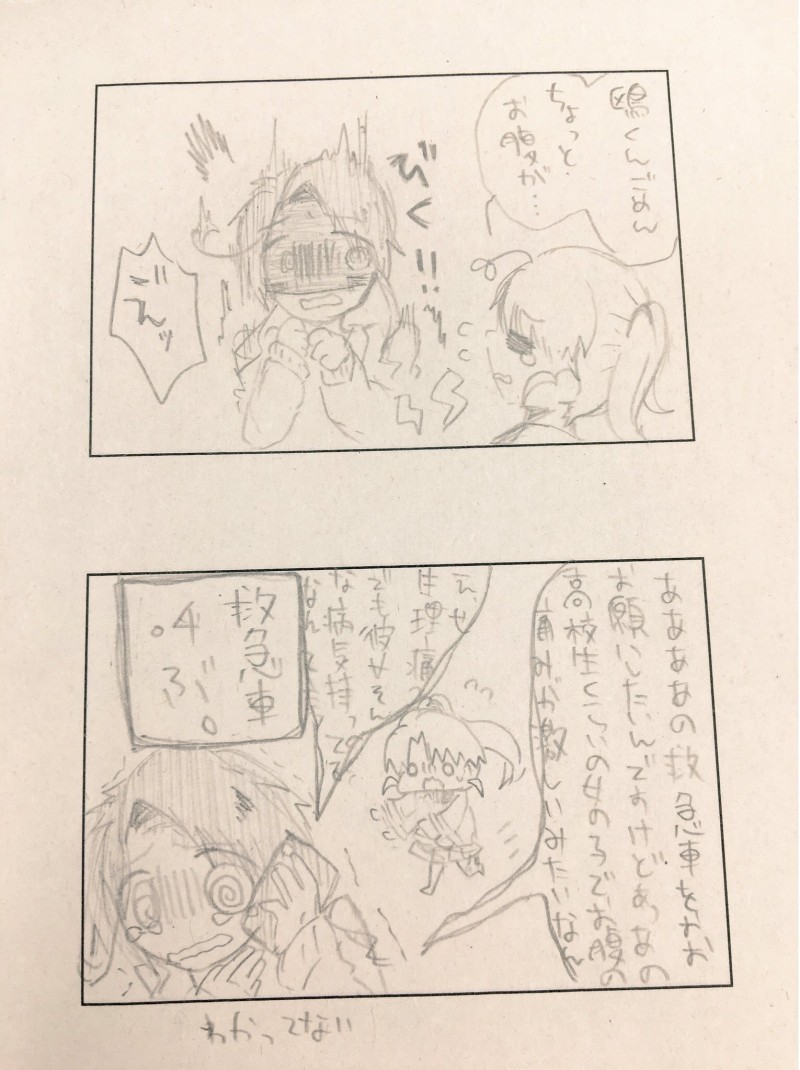 鴎くんごめん
ちょっと
お腹が…
びく!!
ごえッ
ああああの救急車をおお
お願いしたいんですけどあっあの
高校生くらいの女の子でお腹の
痛みが激しいみたいなん
えっ
生理痛っ
でも彼女そん
な病気持ってる
なんて
救急車
4ぶ。
わかってない